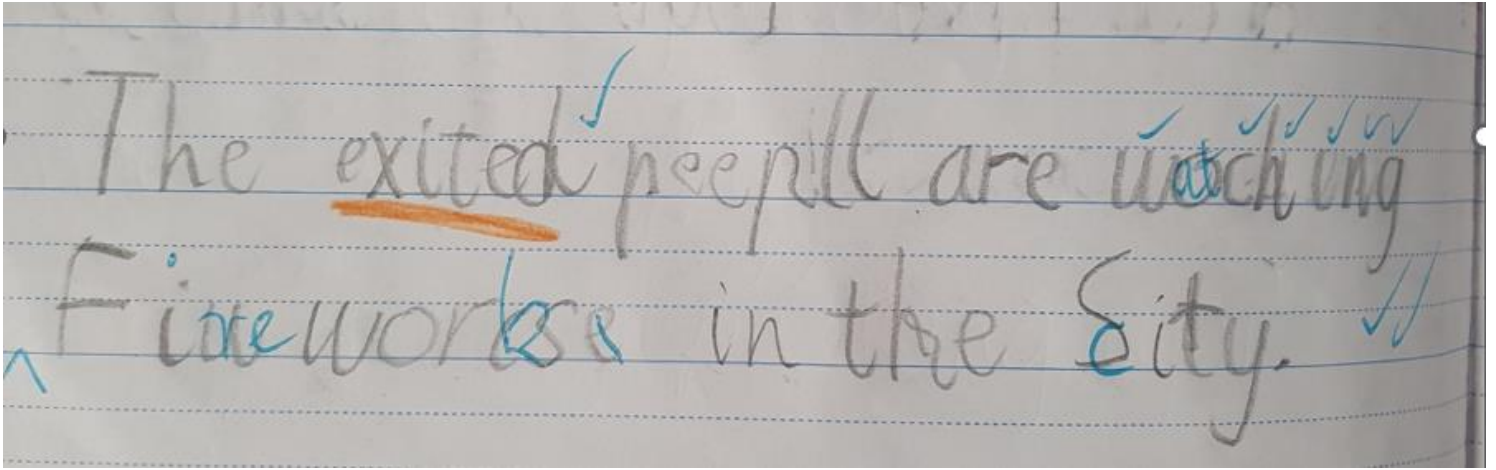 The exited peepll are watching
Fireworks in the City.